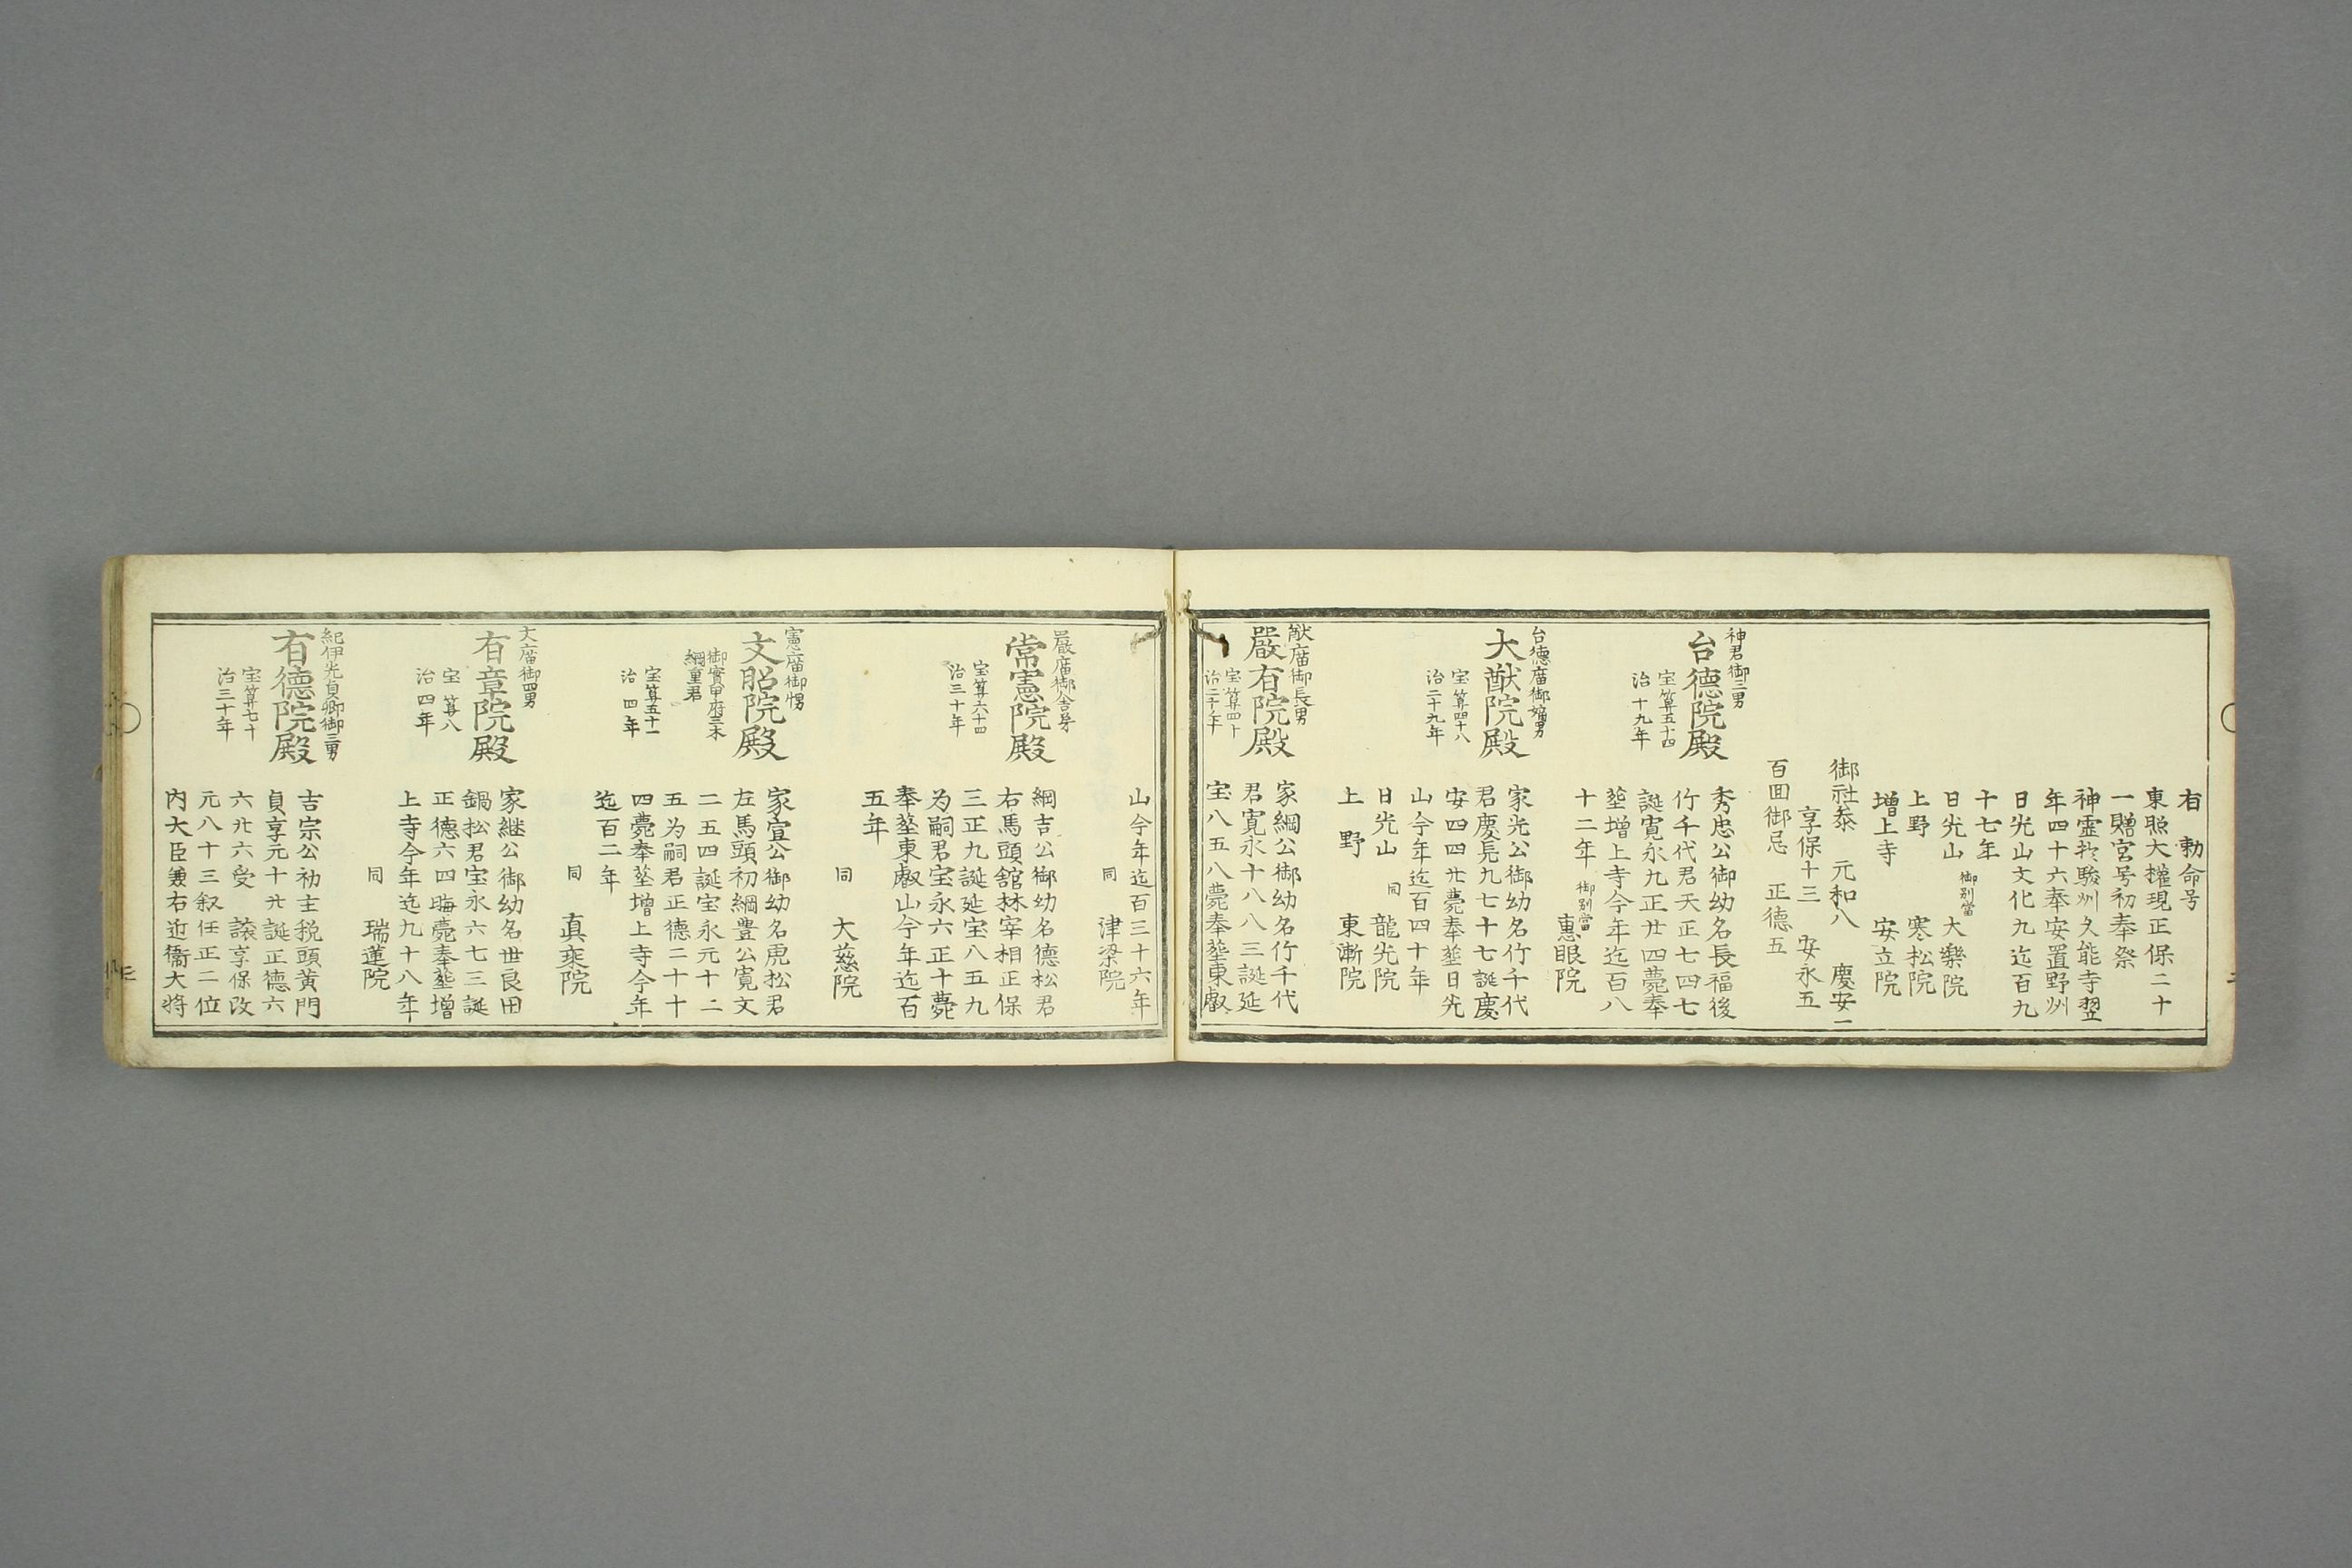 右 勅命号
東照大権現正保二十
一贈宮号初奉祭
神霊於駿州久能寺翌
年四十六奉安置野州
日光山文化九迄百九
十七年
日光山 御別當 大樂院
上野 寒松院
増上寺 安立院
御社参 元和八 慶安二
享保十三 安永五
百回御忌 正徳五
神君御三男
台德院殿
宝算五十四
治十九年
秀忠公御幼名長福後
竹千代君天正七四七
誕寛永九正廿四薨奉
葬増上寺今年迄百八
十二年
御別當 恵眼院
台德廟御嫡男
大猷院殿
宝算四十八
治二十九年
家光公御幼名竹千代
君慶長九七十七誕慶
安四四廿薨奉葬日光
山今年迄百四十年
日光山 同 龍光院
上野 東漸院
猷廟御長男
嚴有院殿
宝算四十
家綱公御幼名竹千代
君寛永十八八三誕延
宝八五八薨奉葬東叡
山今年迄百三十六年
同 津梁院
嚴廟御舎弟
常憲院殿
宝算六十四
治三十年
綱吉公御幼名德松君
右馬頭舘林宰相正保
三正九誕延宝八五九
为嗣君宝永六正十薨
奉葬東叡山今年迄百
五年
同 大慈院
憲廟御甥
文昭院殿
御實甲府三木
綱重君
宝算五十一
治四年
家宣公御幼名虎松君
左馬頭初綱豊公寛文
二五四誕宝永元十二
五为嗣君正德二十十
四薨奉葬増上寺今年
迄百二年
同 真乘院
文廟御四男
有章院殿
宝算八
治四年
家継公御幼名世良田
鍋松君宝永六七三誕
正德六四晦薨奉葬増
上寺今年迄九十八年
同 瑞蓮院
紀伊光貞卿御三男
有德院殿
宝算七十
治三十年
吉宗公初主税頭黄門
貞享元十廿誕正德六
六廿六受 譲享保改
元八十三叙任正二位
内大臣兼右近衞大将